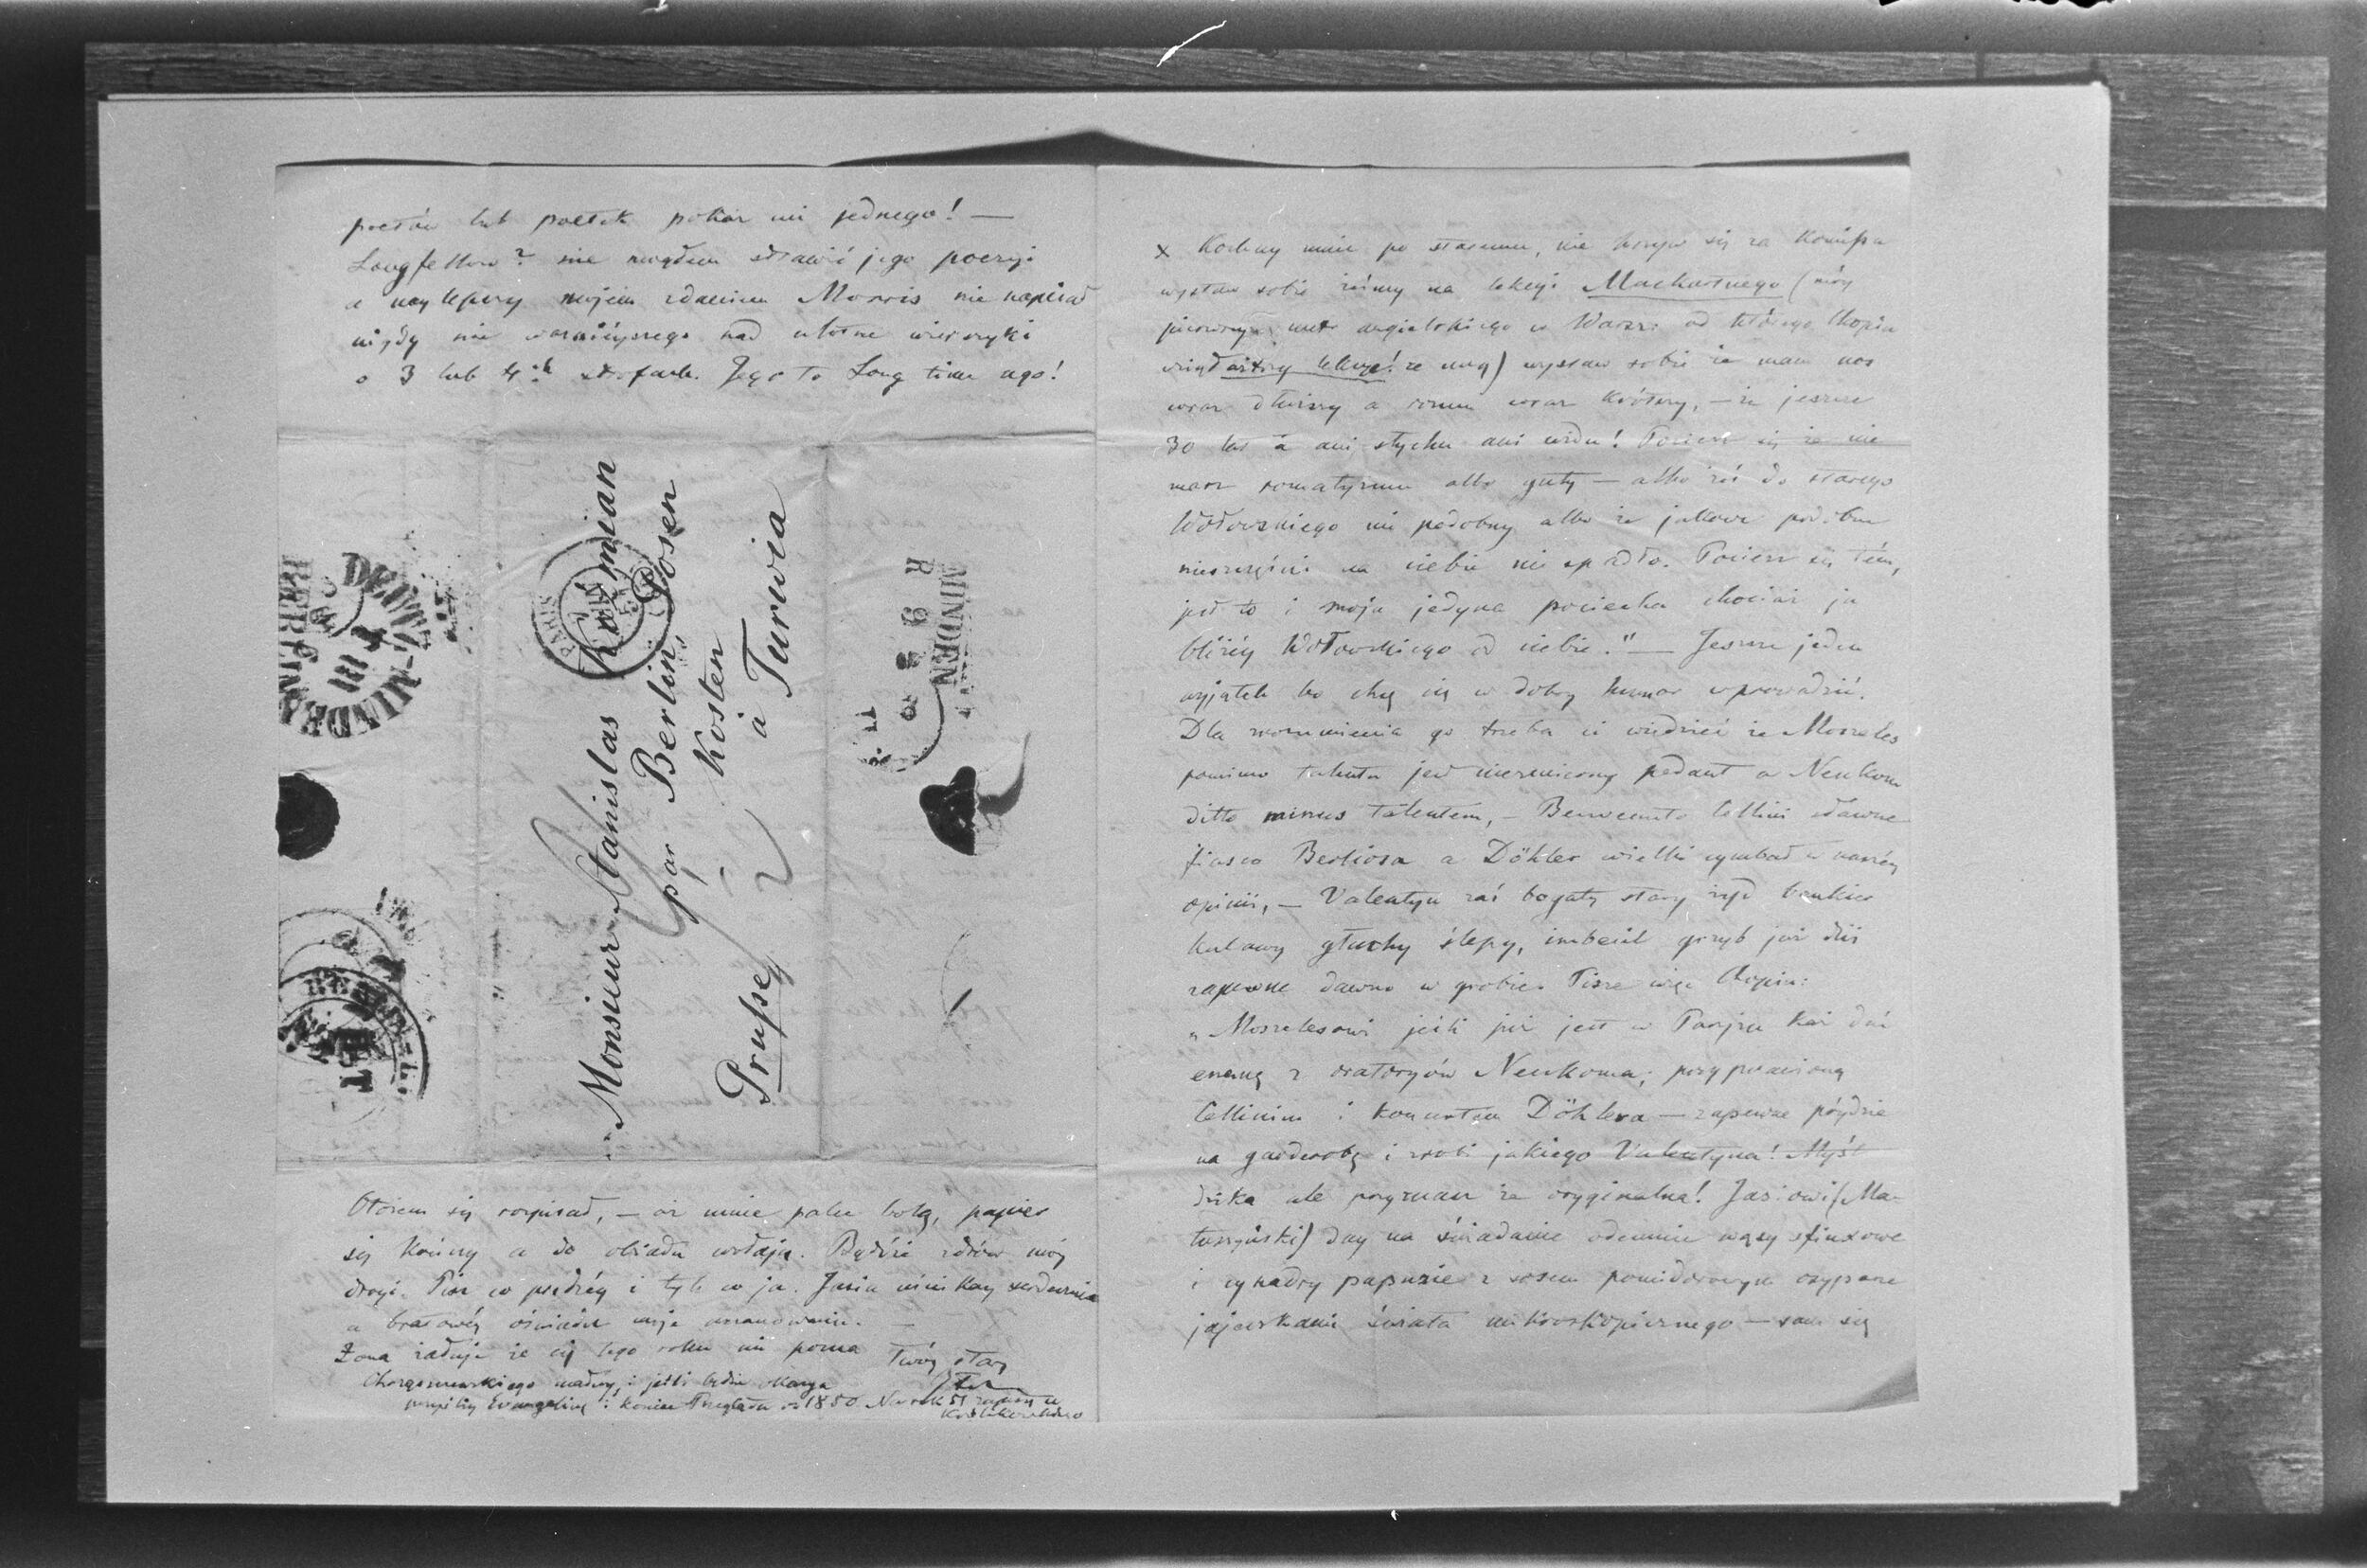 poetów lub poetek pokaż mi jednego! —
Longfellow? nie mogłem strawić jego poezji
a naylepszy mojém zdaniem Morris nie napisał
nigdy nic ważniéyszego nad ulotne wierszyki
o 3 lub 4ch strofach. Jego to Long time ago!
Monsieur Stanislas Koźmian
par Berlin, Posen
Kosten
à Turwia
Prusse
PARIS
MINDEN
BERLIN
Otożem się rozpisał, — aż mnie palce bolą, papier
się kończy a do obiadu wołają. Bądźże zdrów mój
drogi. Pisz co prędzéy i tyle co ja. Jasia uściskay serdecznie
a bratowéy oświadcz moje uszanowanie. —
Żona żałuje że cię tego roku nie pozna Twóy stary
i jeśli będzie okazya
Evangeliny i koniec Przeglądu z 1850. Na rok 51 zapisz u
x Kochay mnie po staremu, nie
wystaw sobie żeśmy na lekcyi Mackartnego (móy
pierwszy metr angielskiego w Warsz: od którego Chopin
wziął cztery lekcye! ze mną) wystaw sobie że mam nos
coraz dłuższy a rozum coraz krótszy, — że jeszcze
30 lat a ani słychu ani widu! Pociesz się że nie
masz romatyzmu albo guty — albo żeś do starego
Wołowskiego nie podobny albo że jakowe podobne
nieszczęście na ciebie nie spadło. Pociesz się tém,
jest to i moja jedyna pociecha chociaż ja
bliżéy Wołowskiego od ciebie." — Jeszcze jeden
wyjątek bo chcę cię w dobry humor wprowadzić.
Dla zrozumienia go trzeba ci wiedzieć że Moszeles
pomimo talentu jest niezmierny pedant a Neukom
ditto minus talentem, — Benvenuto Cellini sławne
fiasco Berliosa a Döhler wielki cymbał w naszéy
opinii, — Valentyn zaś bogaty stary żyd bankier
kulawy głuchy ślepy, imbecil grzyb już dziś
zapewne dawno w grobie. Pisze więc Chopin:
„Moszelesowi jeśli już jest w Paryżu każ dać
enemę z oratoryów Neukoma, przyprawioną
Cellinim i koncertem Döhlera — zapewne póydzie
na garderobę i zrobi jakiego Valentyna! Myśl
dzika ale przyznasz że oryginalna! Jasiowi (Ma-
tuszyński) day na śniadanie odemnie wąsy sfinxowe
i cynadry papuzie z sosem pomidorowym osypane
jajeczkami świata mikroskopicznego — sam się